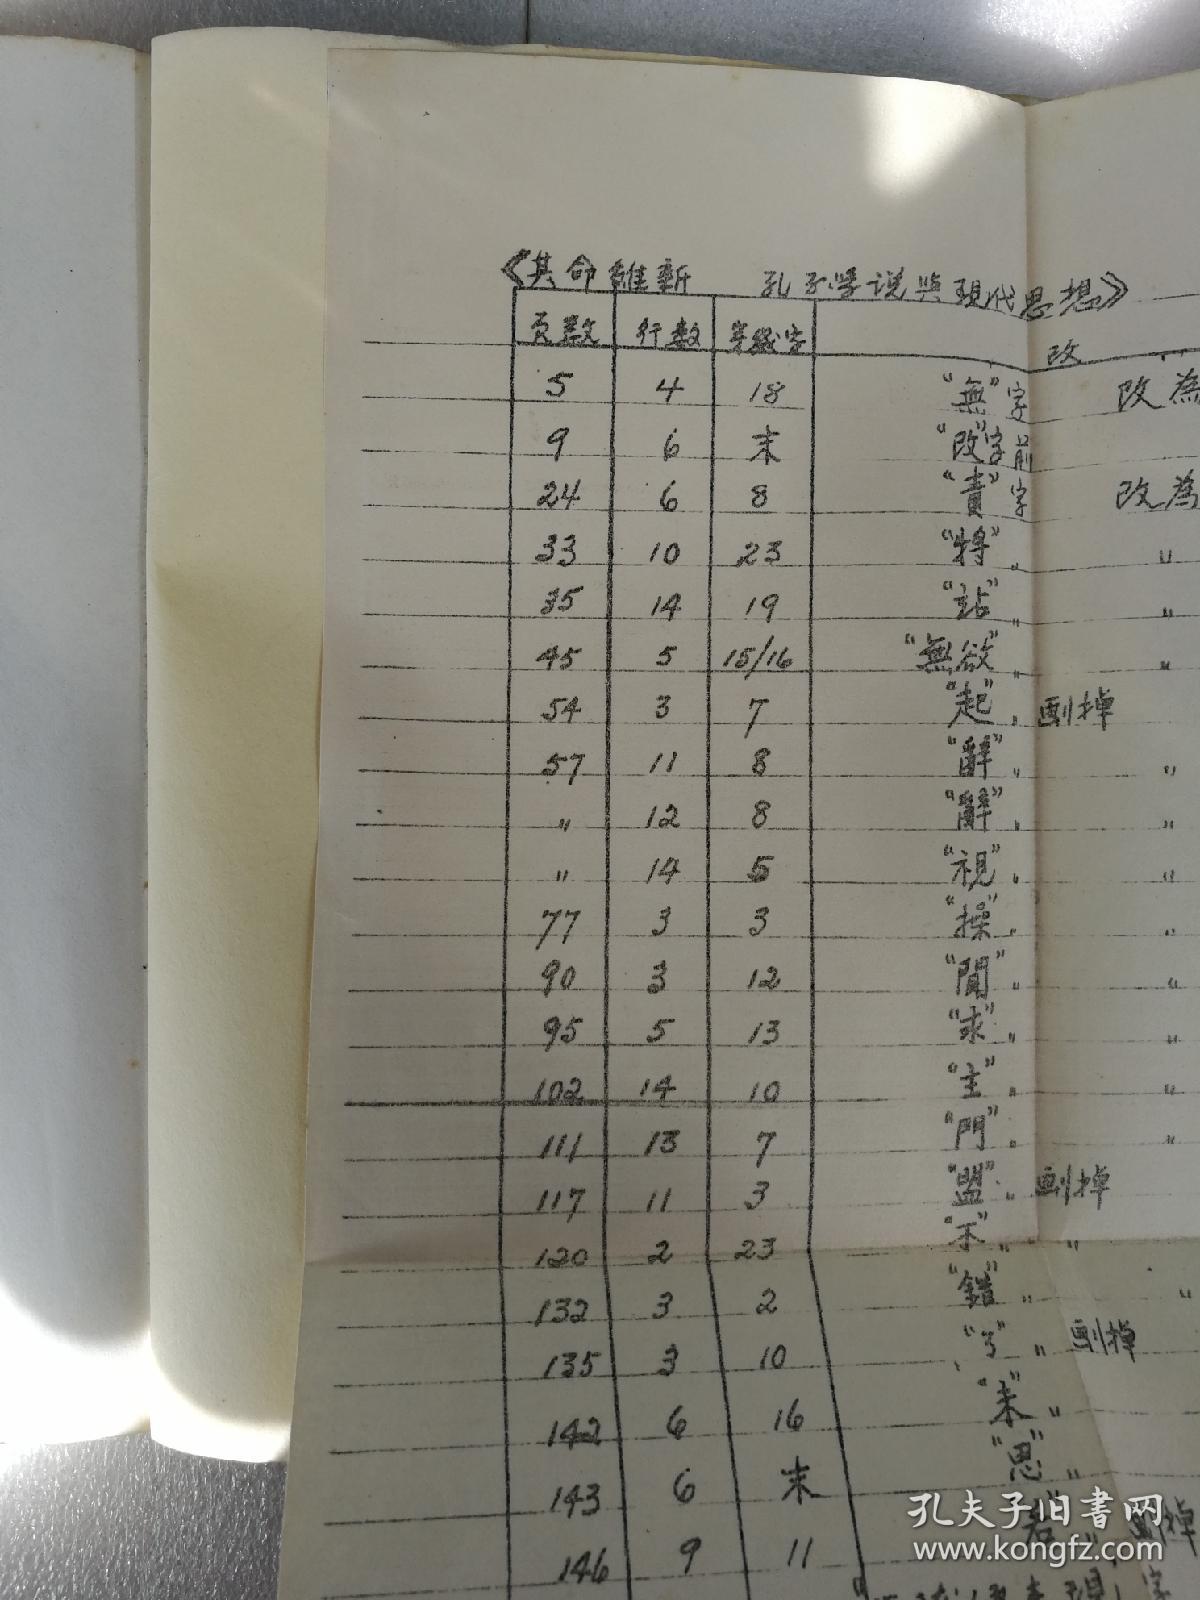 《其命維新 孔子学说與現代思想》
页数 行数 第幾字 改
5 4 18 "無"字 改為
9 6 末 "改"字前
24 6 8 "責"字 改為
33 10 23 "將" 〃 〃
35 14 19 "站" 〃 〃
45 5 15/16 "無欲" 〃 〃
54 3 7 "起" 〃 刪掉
57 11 8 "辭" 〃 〃
〃 12 8 "辭" 〃 〃
〃 14 5 "視" 〃 〃
77 3 3 "操" 〃 〃
90 3 12 "間" 〃 〃
95 5 13 "求" 〃 〃
102 14 10 "主" 〃 〃
111 13 7 "門" 〃 〃
117 11 3 "盟" 〃 刪掉
120 2 23 "不" 〃 〃
132 3 2 "錯" 〃 〃
135 3 10 〃 刪掉
142 6 16 "未" 〃
143 6 末 "思" 〃
146 9 11 刪掉
孔夫子旧书网
www.kongfz.com